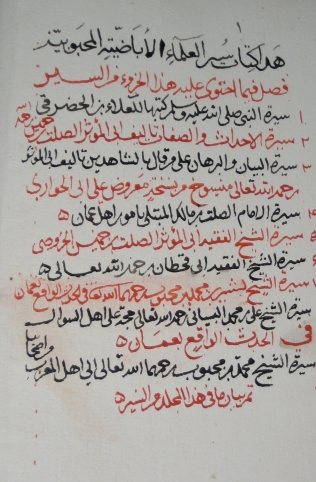 هذا كتاب سير العلماء الأباضية المحبوبية
فصل فيما احتوى عليه هذا الجزء من السير
١ سيرة النبي صلى الله عليه وسلم كتبها للعلاء بن الحضرمي
٢ سيرة الاحداث والصفات تاليف ابى المؤثر الصلت بن خميس رحمه الله
٣ سيرة البيان والبرهان على من قال بالشاهدين تاليف ابى المؤثر
رحمه الله تعالى منسوخ من نسخة معروض على ابى الحواري
٤ سيرة الامام الصلت بن مالك المبتلى بامور اهل عمان
٥ سيرة الشيخ الفقيه ابى المؤثر الصلت بن خميس الخروصي
٦ سيرة الشيخ الفقيه ابى قحطان رحمه الله تعالى
سيرة الشيخ بشير بن محمد بن محبوب رحمهما الله تعالى في الحدث الواقع بعمان
سيرة الشيخ على بن محمد البسيانى رحمه الله تعالى حجة على اهل السؤال
في الحدث الواقع بعمان
سيرة الشيخ محمد بن محبوب رحمهما الله تعالى الى اهل المغرب
تم بيان ما في هذا المجلد من السير